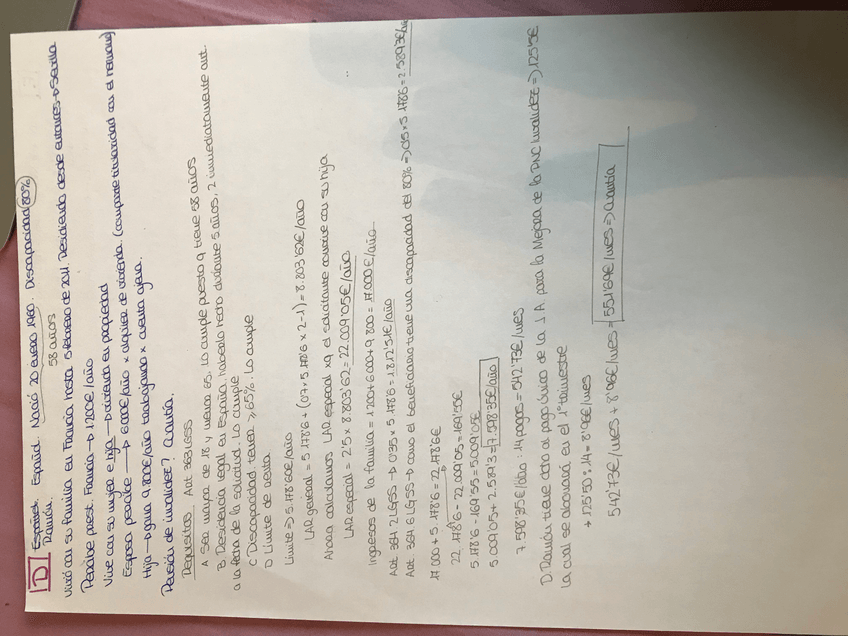 D Español. Español. Nació 20 enero 1960. Discapacidad 80%
Ramón. 58 años
Vivió con su familia en Francia hasta 5 febrero de 2011. Residiendo desde entonces → Sevilla
Percibe prest. Francia → 1200€/año
Vive con su mujer e hija → vivienda en propiedad
Esposa percibe → 6000€/año x alquiler de vivienda. (comparte titularidad con el
Hija → gana 9.800€/año trabajando x cuenta ajena.
Pensión de invalidez? Cuantía.
Requisitos Art 363 LGSS
A Sea mayor de 18 y menor 65. Lo cumple puesto q tiene 58 años
B Residencia legal en España, haberlo hecho durante 5 años, 2 inmediatamente ant.
a la fecha de la solicitud. Lo cumple
C Discapacidad tener ≥65%. Lo cumple
D Límite de renta
Límite → 5.178'60€/año
LAR general = 5.178'6 + (0'7 x 5.178'6 x 2-1) = 8.803'62€/año
Ahora calculamos LAR especial xq el solicitante convive con su hija
LAR especial = 2'5 x 8.803'62 = 22.009'05€/año
Ingresos de la familia = 1.200+6.000+9.800 = 17.000€/año
Art 364.2 LGSS → 0'35 x 5.178'6 = 1.812'51€/año
Art 364.6 LGSS → como el beneficiario tiene una discapacidad del 80% ⇒ 0'5 x 5.178'6 = 2.589'3€/año
17.000 + 5.178'6 = 22.178'6€
22.178'6 - 22.009'05 = 169'55€
5.178'6 - 169'55 = 5.009'05€
5.009'05 + 2.589'3 = 7.598'35€/año
7.598'35€/año : 14 pagas = 542'73€/mes
D. Ramón tiene dcho al pago único de la J.A para la Mejora de la PNC Invalidez ⇒ 125'5€
la cual se abonará en el 1º trimestre
+ 125'50 : 14 = 8'96€/mes
542'73€/mes + 8'96€/mes = 551'69€/mes ⇒ Cuantía